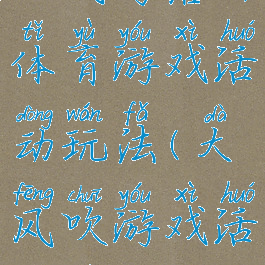 tǐ yù yóu xì huó
体育游戏活
dòng wán fǎ dà
动玩法(大
fēng chuī yóu xì huó
风吹游戏活